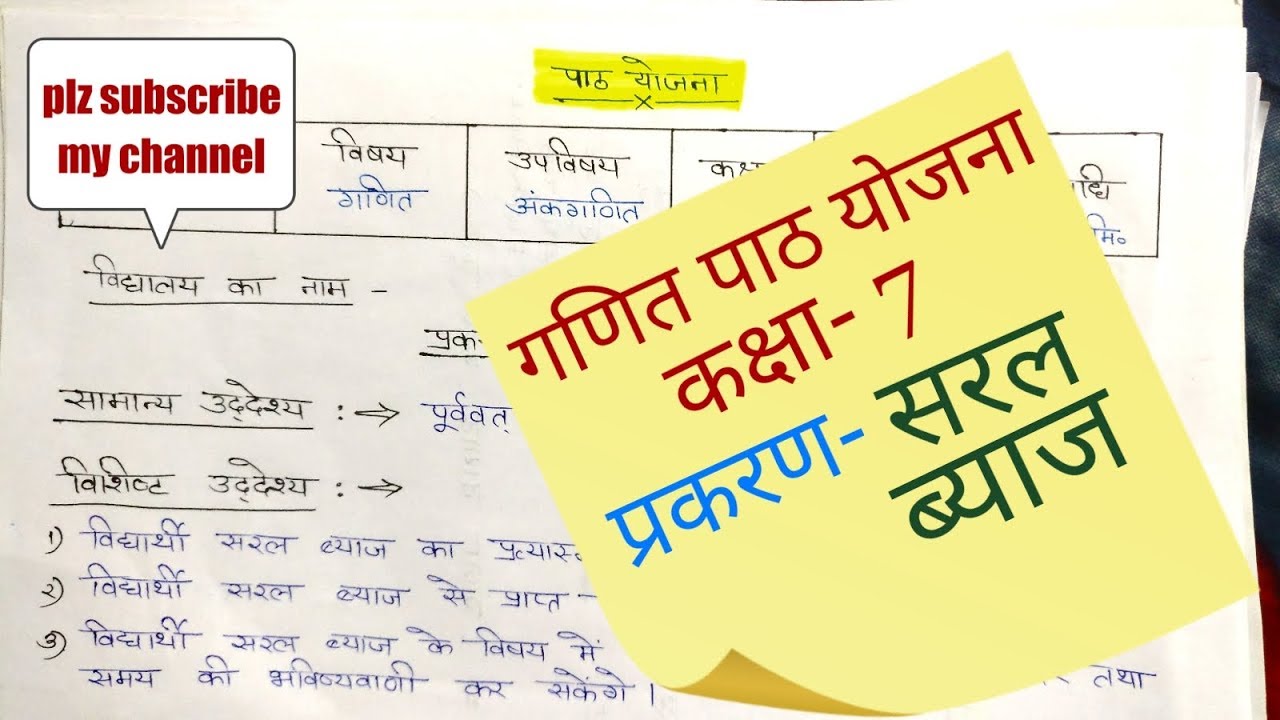 plz subscribe
my channel
पाठ योजना
विषय
गणित
उपविषय
अंकगणित
मि०
विद्यालय का नाम -
सामान्य उद्देश्य :→ पूर्ववत्
विशिष्ट उद्देश्य :→
१) विद्यार्थी सरल ब्याज का
२) विद्यार्थी सरल ब्याज से प्राप्त -
३) विद्यार्थी सरल ब्याज के विषय में
समय की भविष्यवाणी कर सकेंगे । तथा
गणित पाठ योजना
कक्षा- 7
प्रकरण- सरल
ब्याज